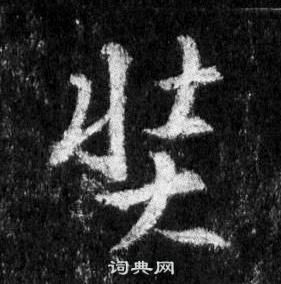 奘
词典网